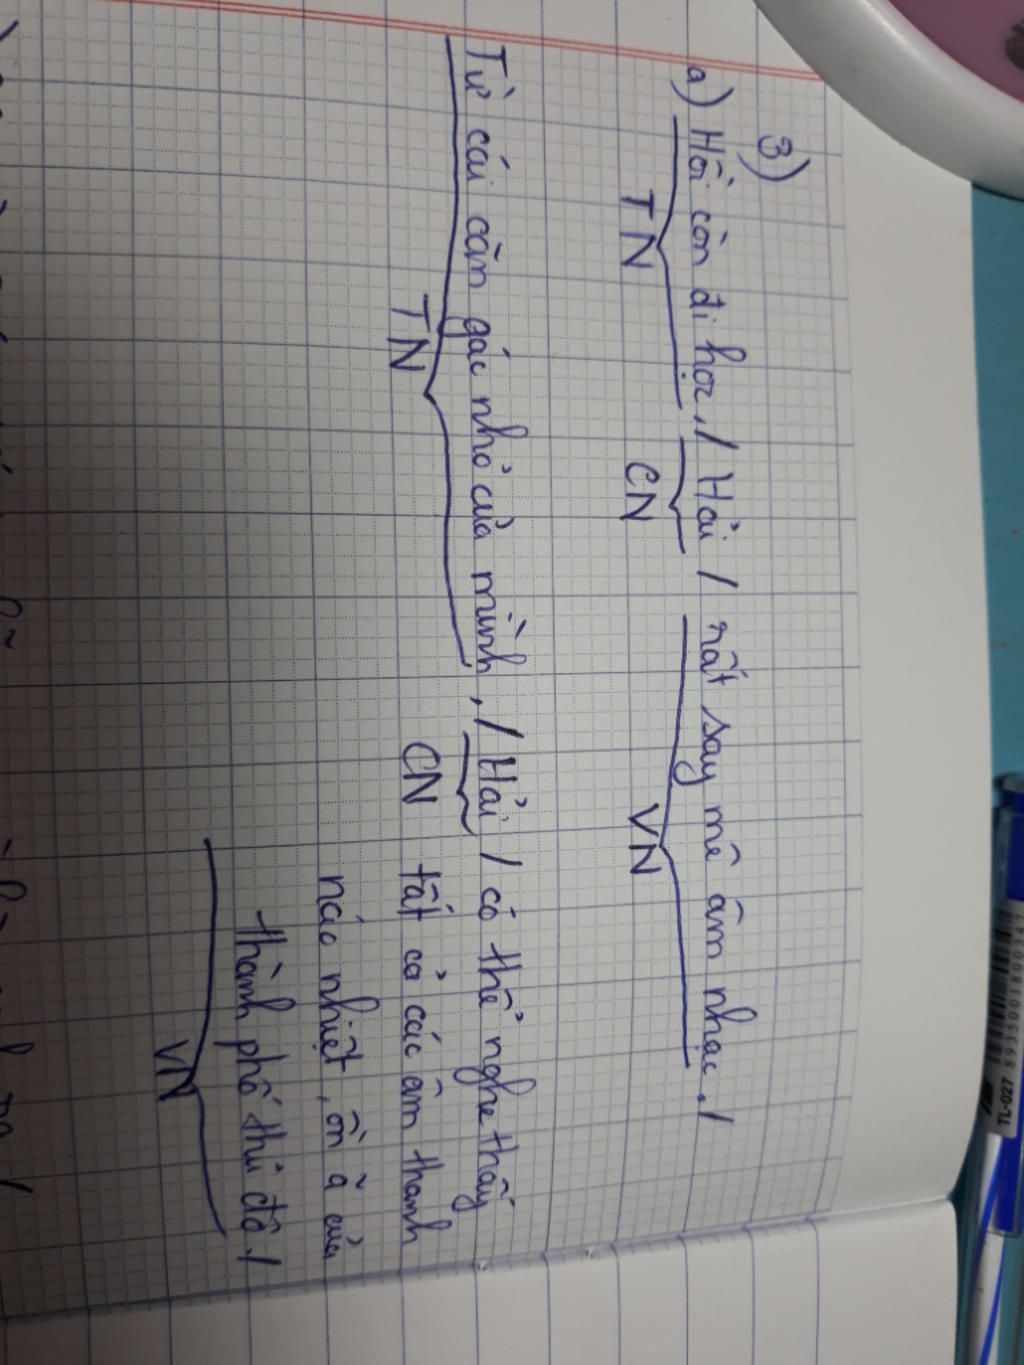 3)
a) Hồi còn đi học, / Hải / rất say mê âm nhạc. /
TN CN VN
Từ cái căn gác nhỏ của mình, / Hải / có thể nghe thấy
TN CN tất cả các âm thanh
náo nhiệt, ồn ã của
thành phố thủ đô. /
VN
TL-027 8935001800347